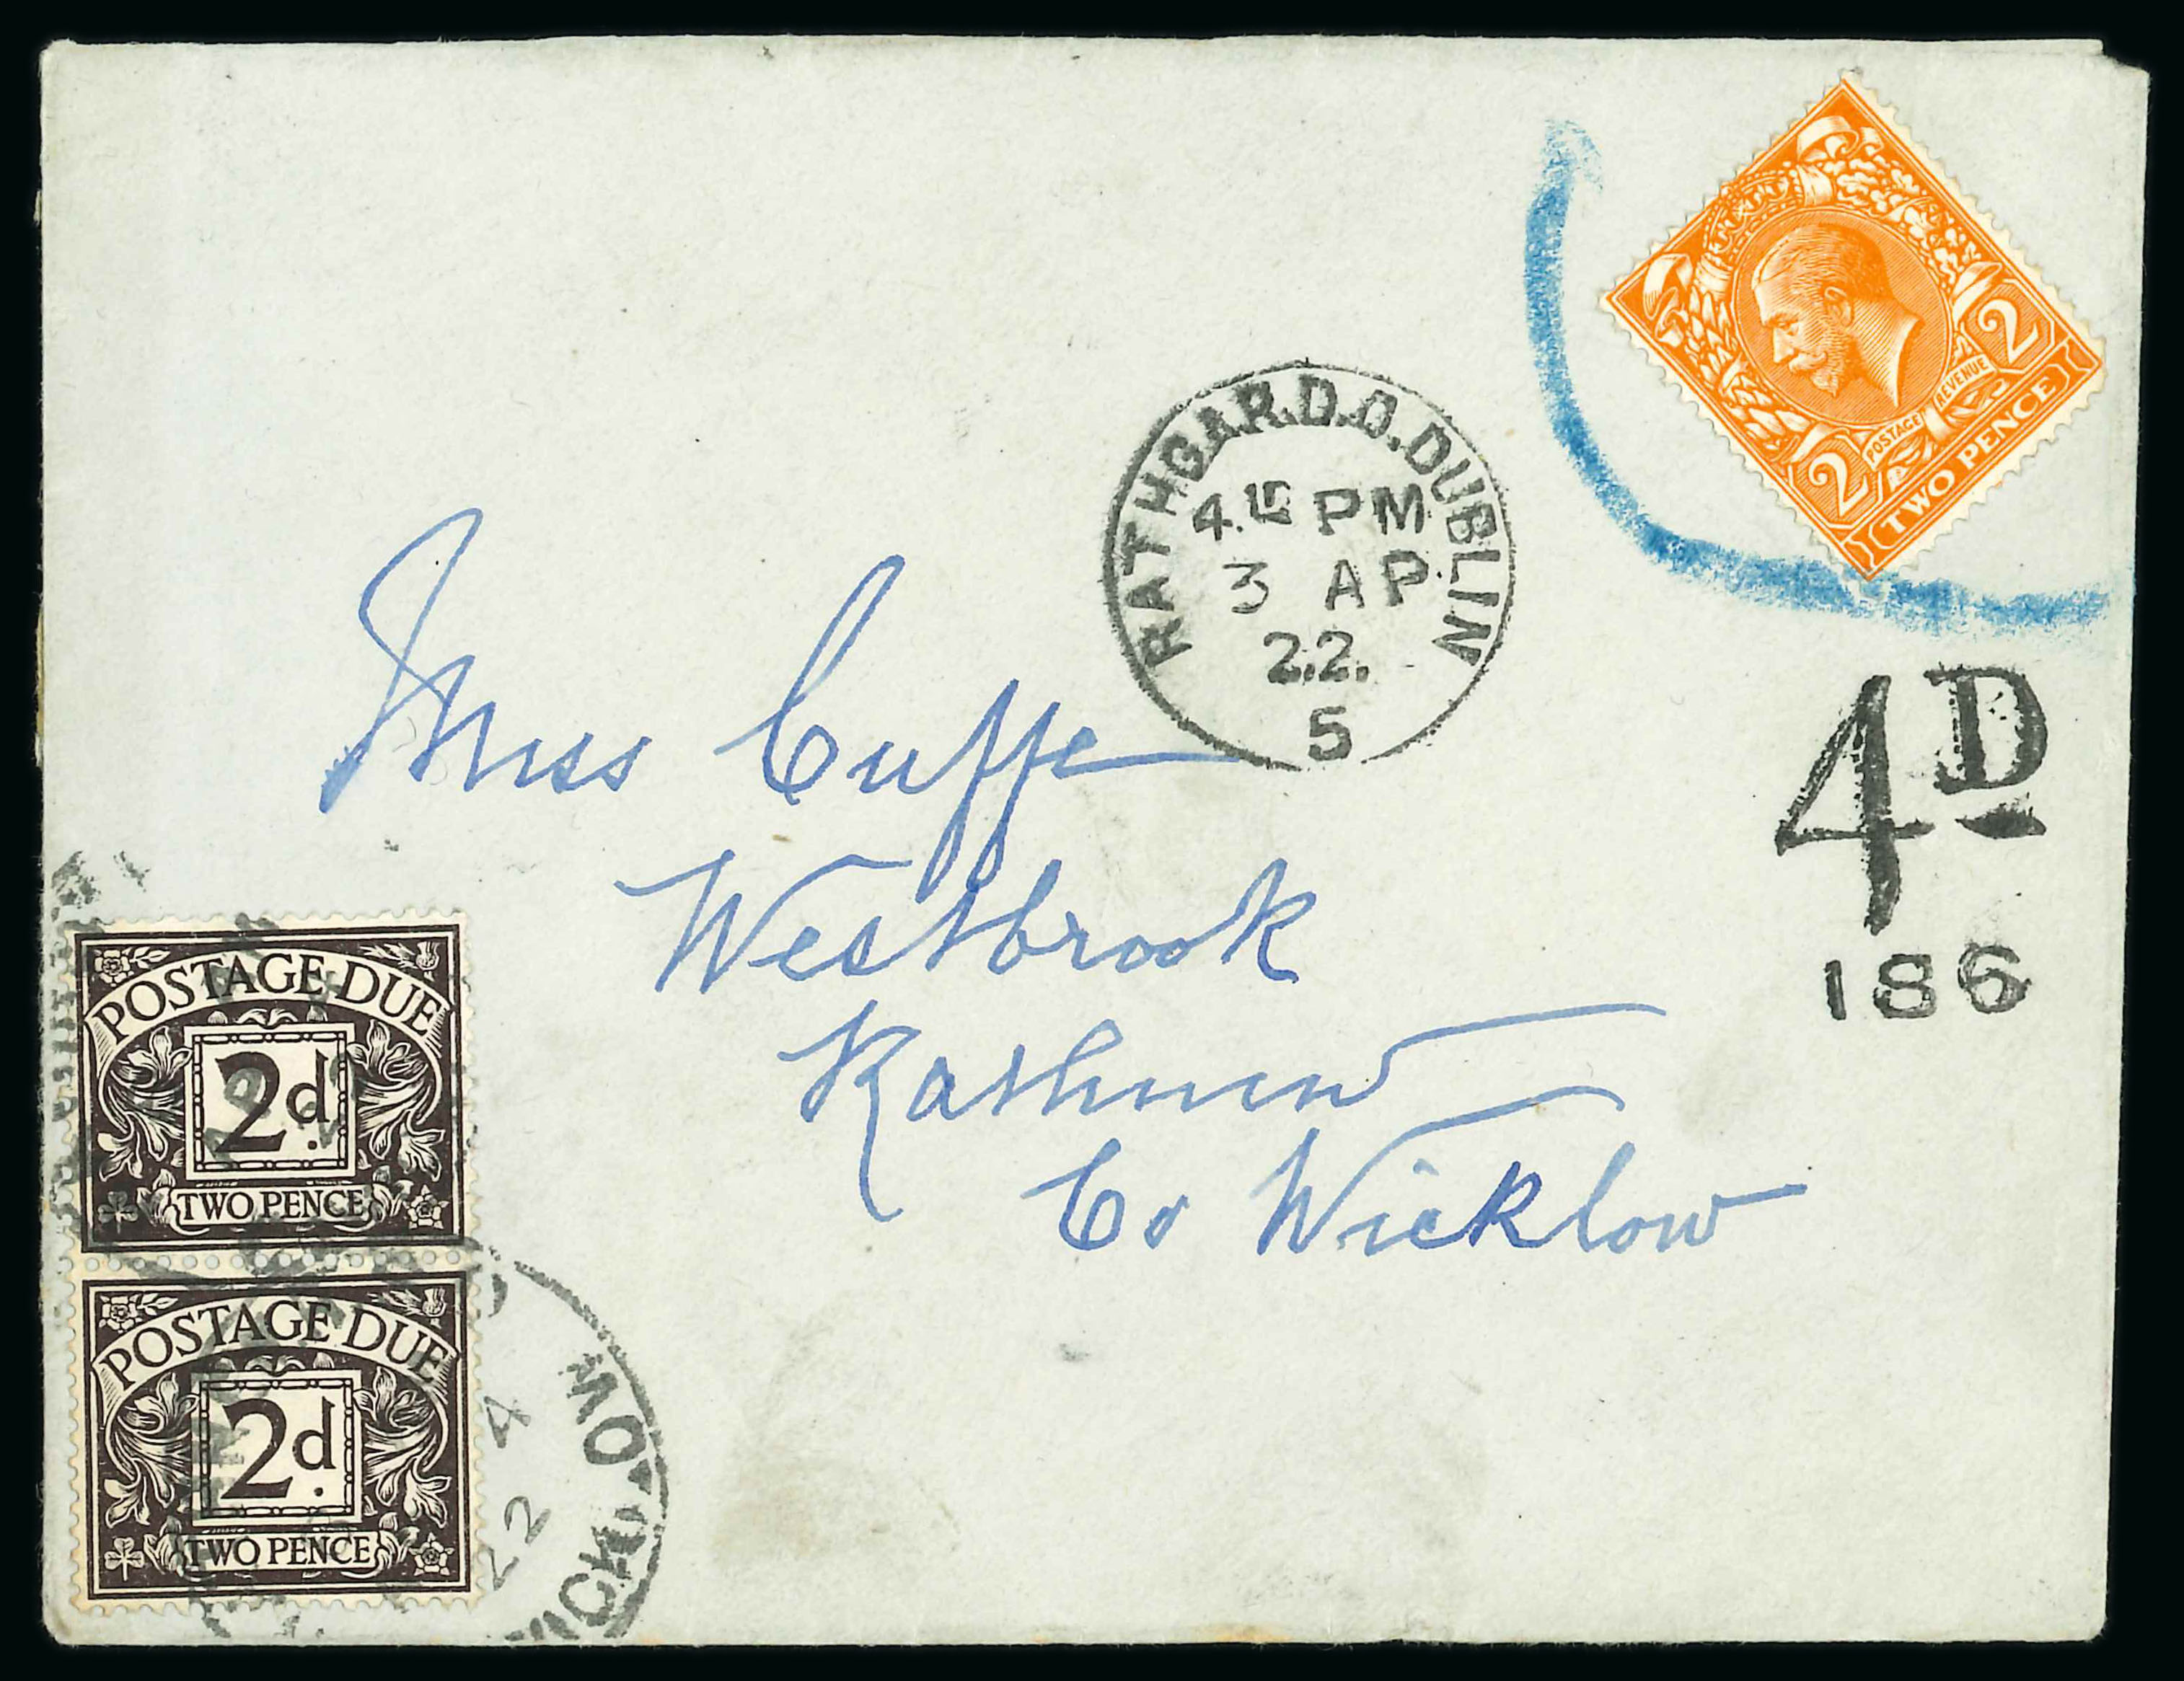 2 POSTAGE REVENUE 2
TWO PENCE
RATHGAR.D.O.DUBLIN
4.15 PM
3 AP
22.
5
4D
186
Miss Cuffe
Westbrook
Rathnew
Co Wicklow
POSTAGE DUE
2d.
TWO PENCE
POSTAGE DUE
2d.
TWO PENCE
4
22